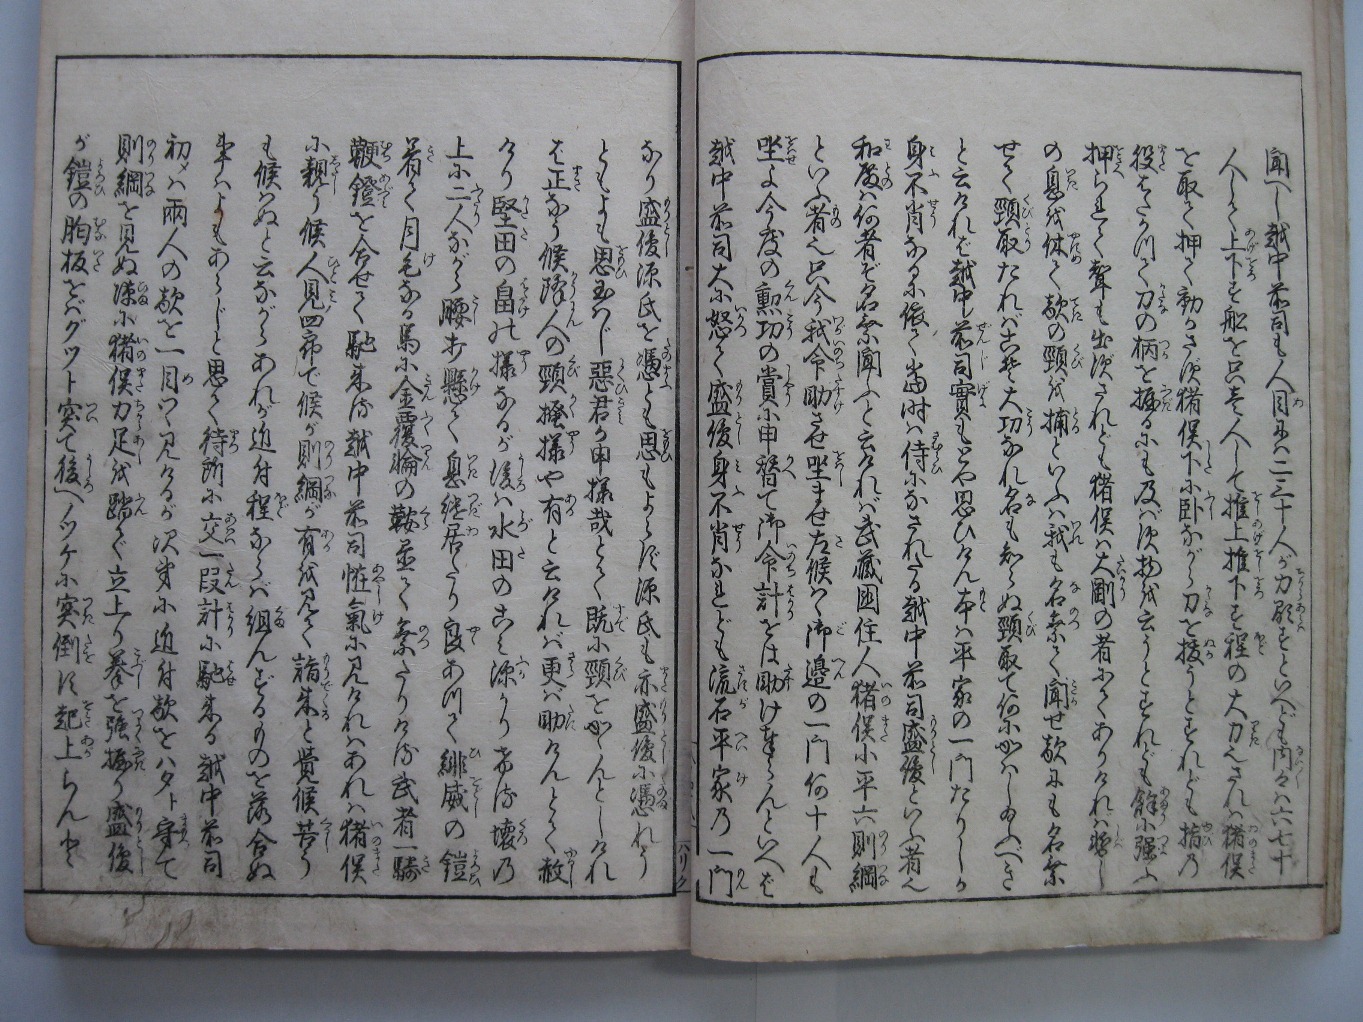 聞へし越中前司も人目には二三十人が力顕すといへども内々は六七十
人して上下す舩を只壱人して推上推下す程の大力也されば猪俣
を取て押て動かさず猪俣下に卧ながら刀を抜うとすれども指の
役はたかつて刀の柄を握るにも及ばず物を云うとすれども餘に強ふ
押られて聲も出ずされども猪俣は大剛の者にてありければ暫し
の息を休て敵の頸を捕といふは我も名乗て聞せ敵にも名乗
せて頸取たればこそ大功なれ名も知らぬ頸取て何にかはしたふべき
と云ければ越中前司實もとや思ひけん本は平家の一門たりしか
身不肖なるに依て當時は侍になされたる越中前司盛俊といふ者也
和殿は何者ぞ名乗聞ふと云ければ武藏国住人猪俣小平六則綱
といふ者也只今我命助させ坐ませ左候はゞ御邊の一門何十人も
坐よ今度の勲功の賞に申替て御命計をは助け奉らんといへば
越中前司大に怒て盛俊身不肖なれども流石平家乃一門
なり盛俊源氏を憑とも思もよらず源氏も亦盛俊に憑れう
ともよも思はじ悪君が申様哉とて既に頸をかゝんとしけれ
ば正なう候降人の頸掻様や有と云ければ更ば助けんとて赦
けり堅田の畠の様なるが後は水田のこみ深かりける壊乃
上に二人ながら腰打懸て息継居たり良あつて緋威の鎧
着て月毛なる馬に金覆輪の鞍置て乗たりける武者一騎
鞭鐙を合せて馳来る越中前司恠氣に見ければあれは猪俣
に親う候人見四郎で候が則綱が有を見て詣来と覚候苦う
も候はぬと云ながらあれが近付程ならば組んずるものを落合ぬ
事はよもあらじと思て待所に交一段計に馳来る越中前司
初めは両人の敵を一目つゝ見けるが次第に近付敵をハタト守て
則綱を見ぬ隙に猪俣力足を踏て立上り拳を強握り盛俊
が鎧の胸板をバグツト突て後へノツケに突倒す起上らんとす